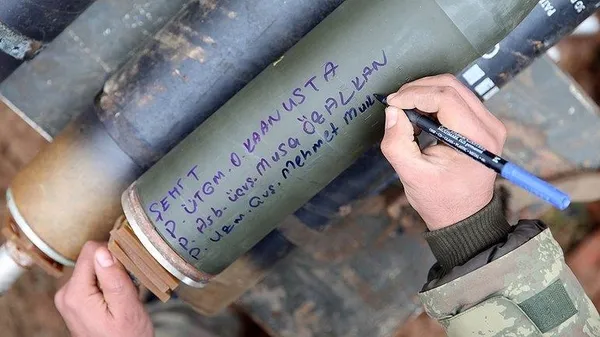 ŞEHİT
P. ÜTGM. O. KAAN USTA
P. Asb. Üçvş. MUSA ÖZALKAN
P. Uzm. Çvş. Mehmet Mu